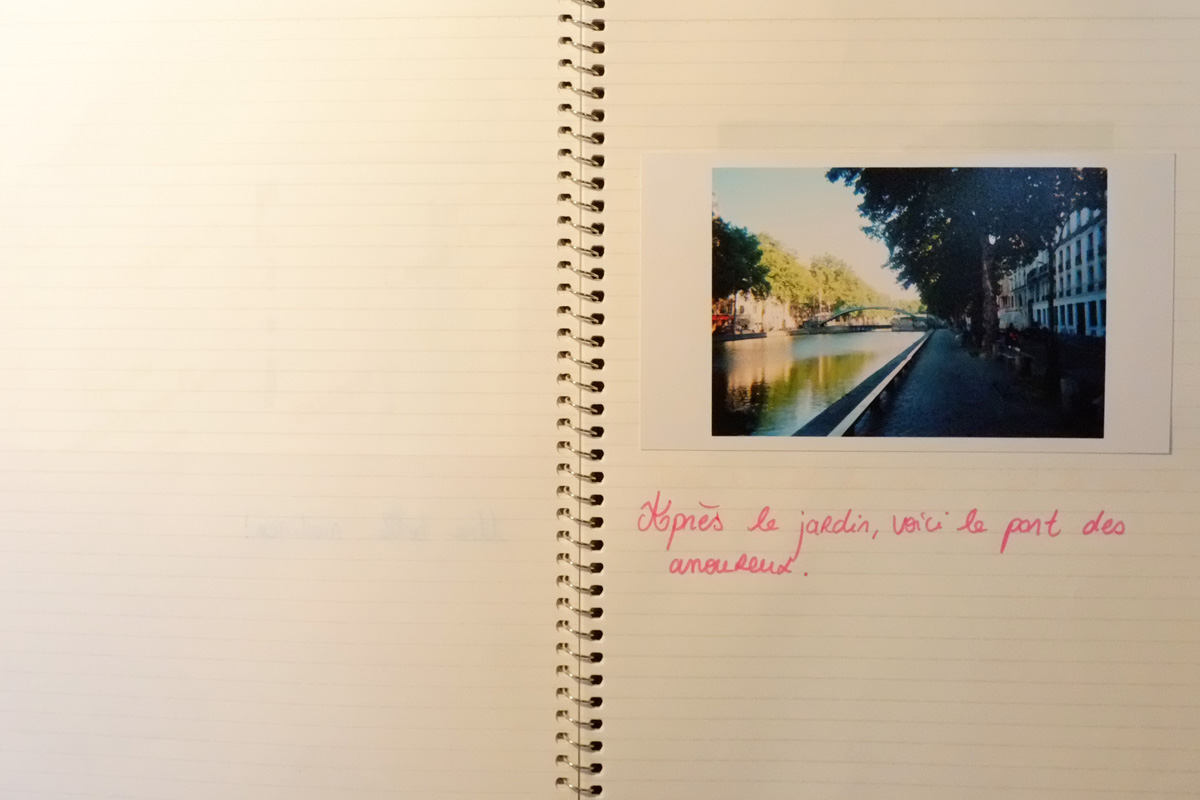 Après le jardin, voici le pont des
amoureux.